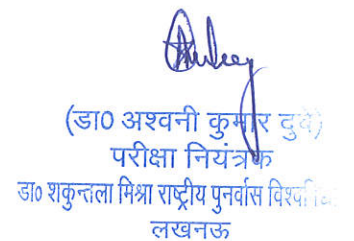 (डा0 अश्वनी कुमार दुबे)
परीक्षा नियंत्रक
डा० शकुन्तला मिश्रा राष्ट्रीय पुनर्वास
लखनऊ